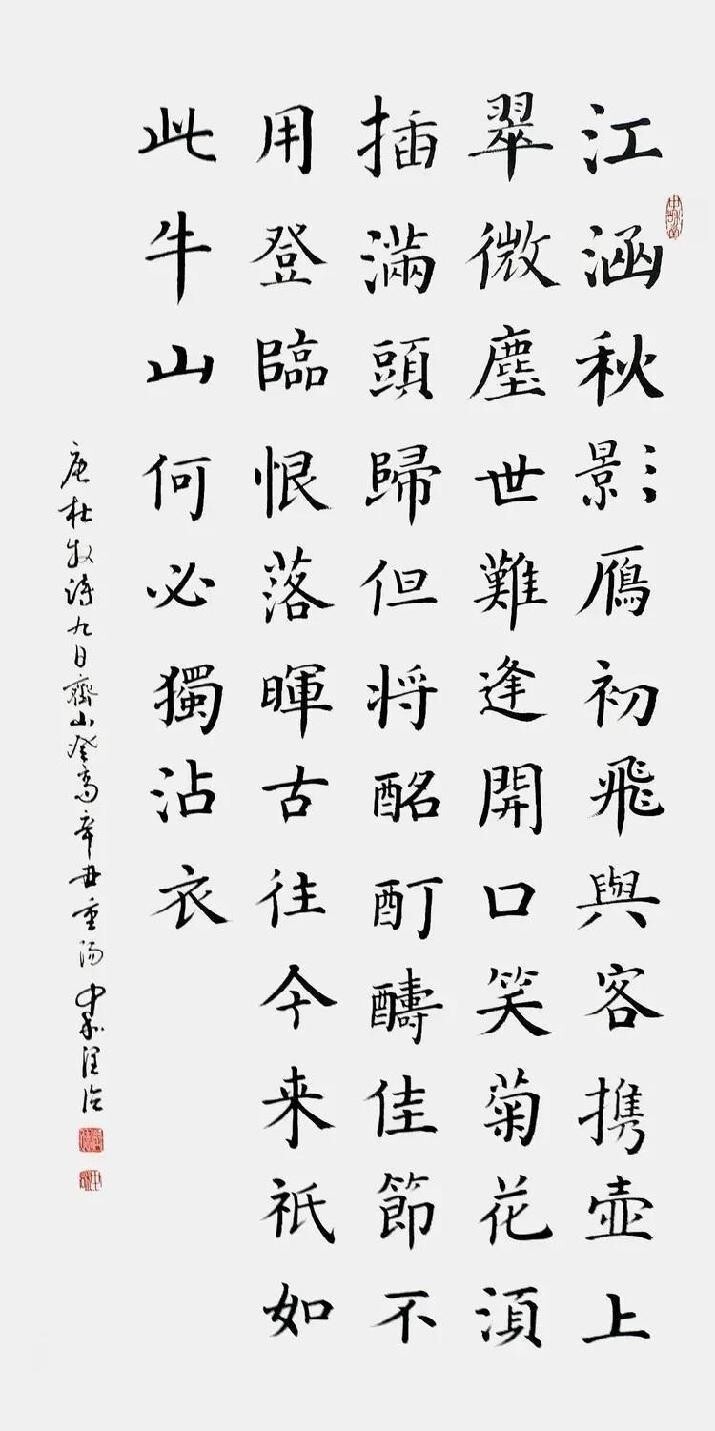 江涵秋影鴈初飛與客携壺上
翠微塵世難逢開口笑菊花湏
插滿頭歸但将酩酊醻佳節不
用登臨恨落暉古往今来祇如
此牛山何必獨沾衣
唐杜牧詩九日齊山登高辛丑重陽